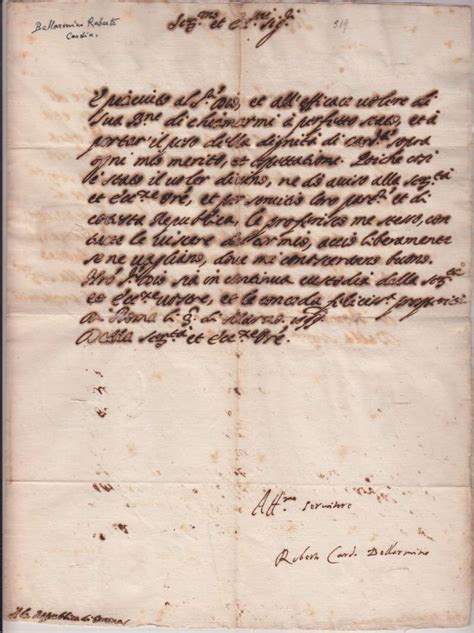 Bellarmino Roberto
Cardin.
319
Ser.mi et Ecc.mi Sig.ri
È piaciuto al S.r Dio, et all'efficace volere di
sua B.ne di chiamarmi à perfetto stato, et à
portar il peso della dignità di card.le sopra
ogni mio merito, et aspettatione. Poiche così
è stato il voler divino, ne dò aviso alla Ser.tà
et Ecc.ze V.re, et per servitio loro et di
cotesta Republica, le proferisco me stesso, con
tutte le viscere del cor mio, acciò liberamente
se ne vagliano, dove me conosceranno buono.
N.ro S.r Dio sia in continua custodia della Ser.tà
et Ecc.ze vostre, et le conceda felicis.e prosperità
Di Roma li di Marzo. 1599
Della Ser.tà et Ecc.ze V.re
Aff.mo servitore
Roberto Card. Bellarmino
Alla Republica di Genova